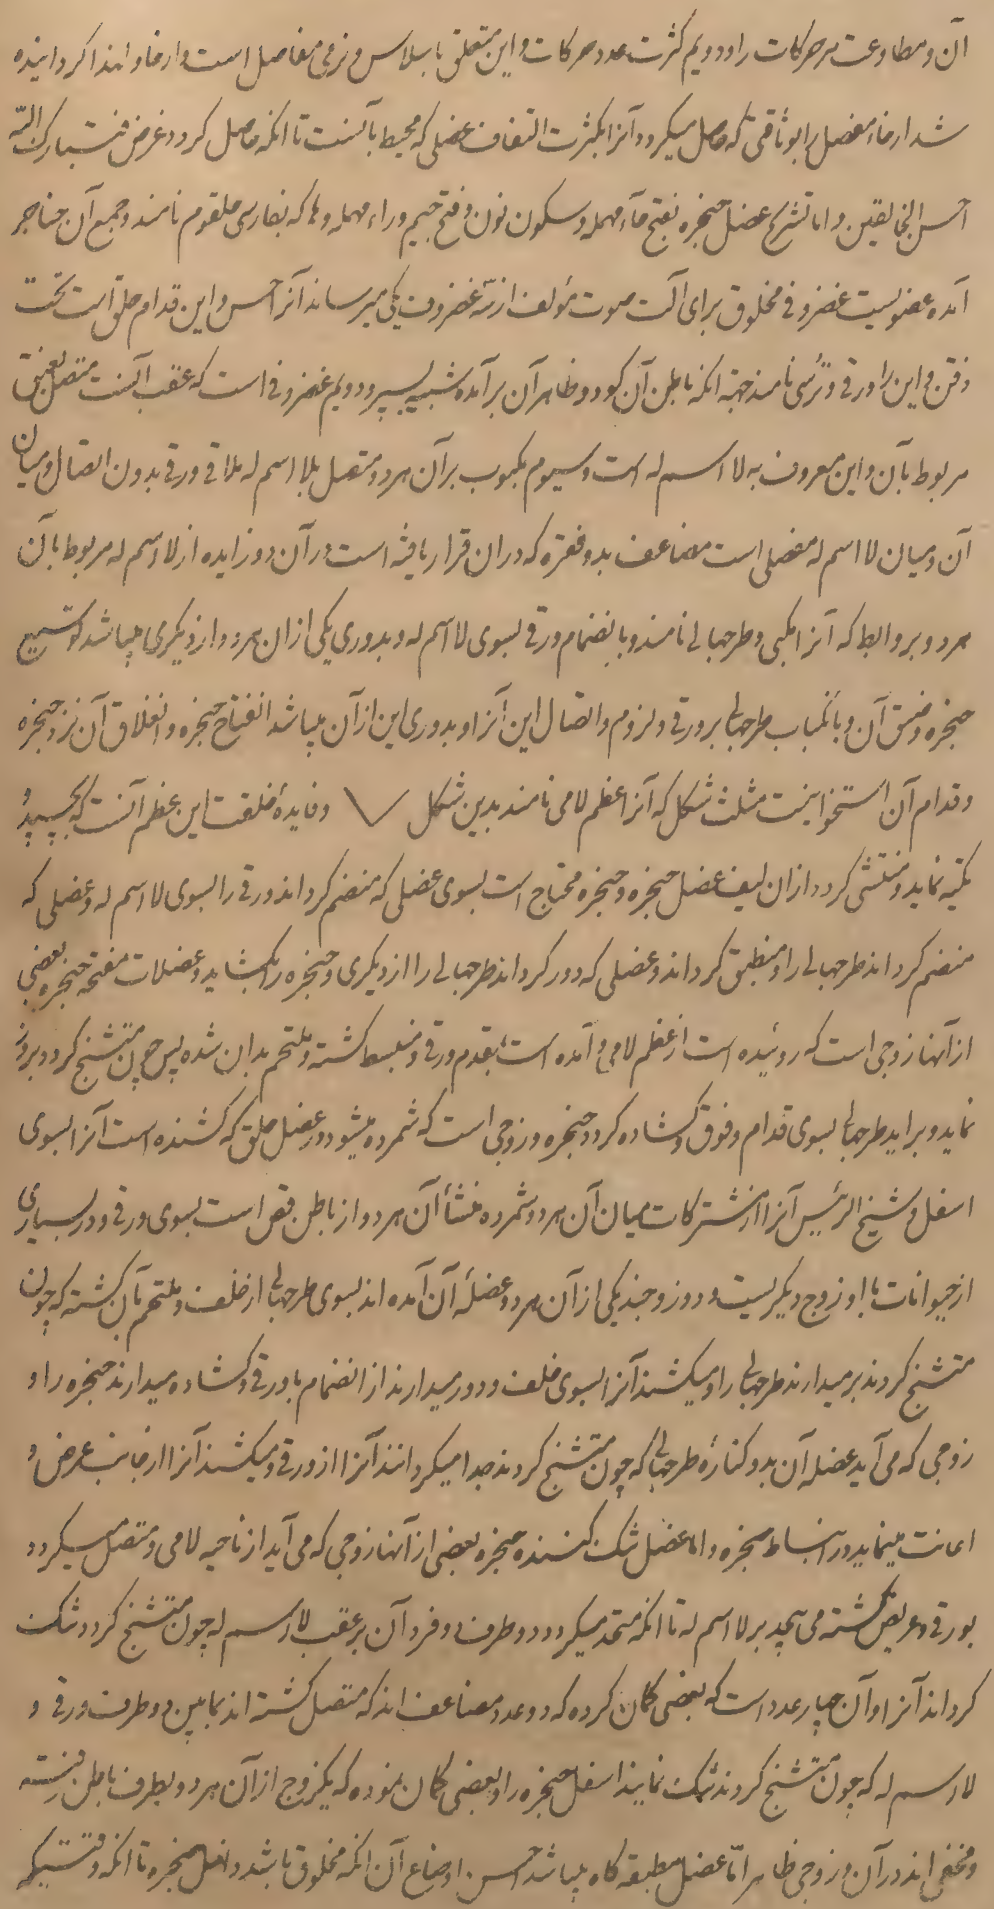 آن و مطاوعت مر حرکات را و دویم کثرت عدد حرکات و این متعلق با سلاس و نرمی مفاصل است و ارخاء و لهذا کردانیده
شد ارخاء مفصل را بوثاقتی که حاصل میکردد آنرا بکثرت التفاف عضلی که محیط بآنست تا انکه حاصل کردد غرض فتبارک الله
احسن الخالقین و اما تشریح عضل حنجره بفتح حاء مهمله و سکون نون و فتح جیم و راء مهمله و ها که بفارسی حلقوم نامند و جمع آن حناجر
آمده عضویست غضروفی مخلوق برای آلت صوت مؤلف از سه غضروف یکی میرساند آنرا حس و این قدام حلق است تحت
ذقن و این را درقی و ترسی نامند جهة انکه باطن آن کود و ظاهر آن برآمده شبیه بسپر و دویم غضروفی است که عقب آنست متصل بعنق
مربوط بآن و این معروف به لا اسم له است و سیوم مکبوب بر آن هر دو متصل بلا اسم له ملاقی درقی بدون اتصال و میان
آن و میان لا اسم له مفصلی است مضاعف بدو فقره که در آن قرار یافته است در آن دو زایده از لا اسم له مربوط بآن
هر دو بروابط که آنرا مکبی و طرجهالی نامند و بانضمام درقی بسوی لا اسم له و بدوری یکی از ان هر دو از دیکری میباشد توسیع
حنجره و ضیق آن و بانکباب طرجهالی بر درقی و لزوم و اتصال این آنرا و بدوری این از آن میباشد انفتاح حنجره و انغلاق آن نزد حنجره
و قدام آن استخوانیست مثلث شکل که آنرا عظم لامی نامند بدین شکل و فایدۀ خلقت این عظم آنست که بچسپد و
تکیه نماید و منتشی کردد از ان لیف عضل حنجره و حنجره محتاج است بسوی عضلی که منضم کرداند درقی را بسوی لا اسم له و عضلی که
منضم کرداند طرجهالی را و منطبق کرداند و عضلی که دور کرداند طرجهالی را از دیکری و حنجره را بکشاید و عضلات مفتحه حنجره بعضی
از آنها زوجی است که روئیده است از عظم لامی و آمده است بقدم درقی و منبسط کشته و ملتحم بدان شده پس چون متشنج کردد بروز
نماید و براید طرجهالی بسوی قدام و فوق و کشاده کردد حنجره و زوجی است که شمرده میشود در عضل حلق که کشنده است آنرا بسوی
اسفل و شیخ الرئیس آنرا از مشترکات میان آن هر دو شمرده منشأ آن هر دو از باطن قص است بسوی درقی و در بسیاری
از حیوانات با او زوج دیکریست و دو زوجند یکی از آن هر دو عضلۀ آن آمده اند بسوی طرجهالی از خلف و ملتحم بآن کشته که چون
متشنج کردند برمیدارند طرجهالی را و میکشند آنرا بسوی خلف و دور میدارند از انضمام با درقی و کشاده میدارند حنجره را و
زوجی که می آید عضله آن بدو کنارۀ طرجهالی که چون متشنج کردند جدا میکردانند آنرا از درقی و میکشند آنرا از جانب عرض و
اعانت مینماید در انبساط حنجره و اما عضل تنک کننده حنجره بعضی از آنها زوجی که می آید از ناحیه لامی و متصل میکردد
بدرقی و عریض کشته می پیچد بر لا اسم له تا انکه متحد میکردد دو طرف دو فرد آن بر عقب لا اسم له چون متشنج کردد تنک
کرداند آنرا و آن چهار عدد است که بعضی کمان کرده که دو عدد مضاعف اند که متصل کشته اند بمابین دو طرف درقی و
لا اسم له که چون متشنج کردند تنک نمایند اسفل حنجره را و بعضی کمان نموده که یکزوج از آن هر دو بطرف باطن رفته
و مخفی اند در آن و زوجی ظاهر امّا عضل مطبقه کاه میباشد احسن اوضاع آن انکه مخلوق باشد داخل حنجره تا انکه وقتیکه